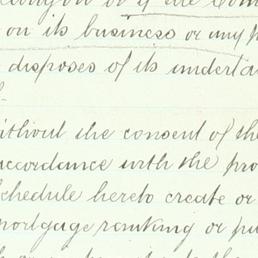 or if the Com
on its business or any p
disposes of its underta
ithout the consent of the
accordance with the pro
chedule hereto create or
mortgage ranking or pa